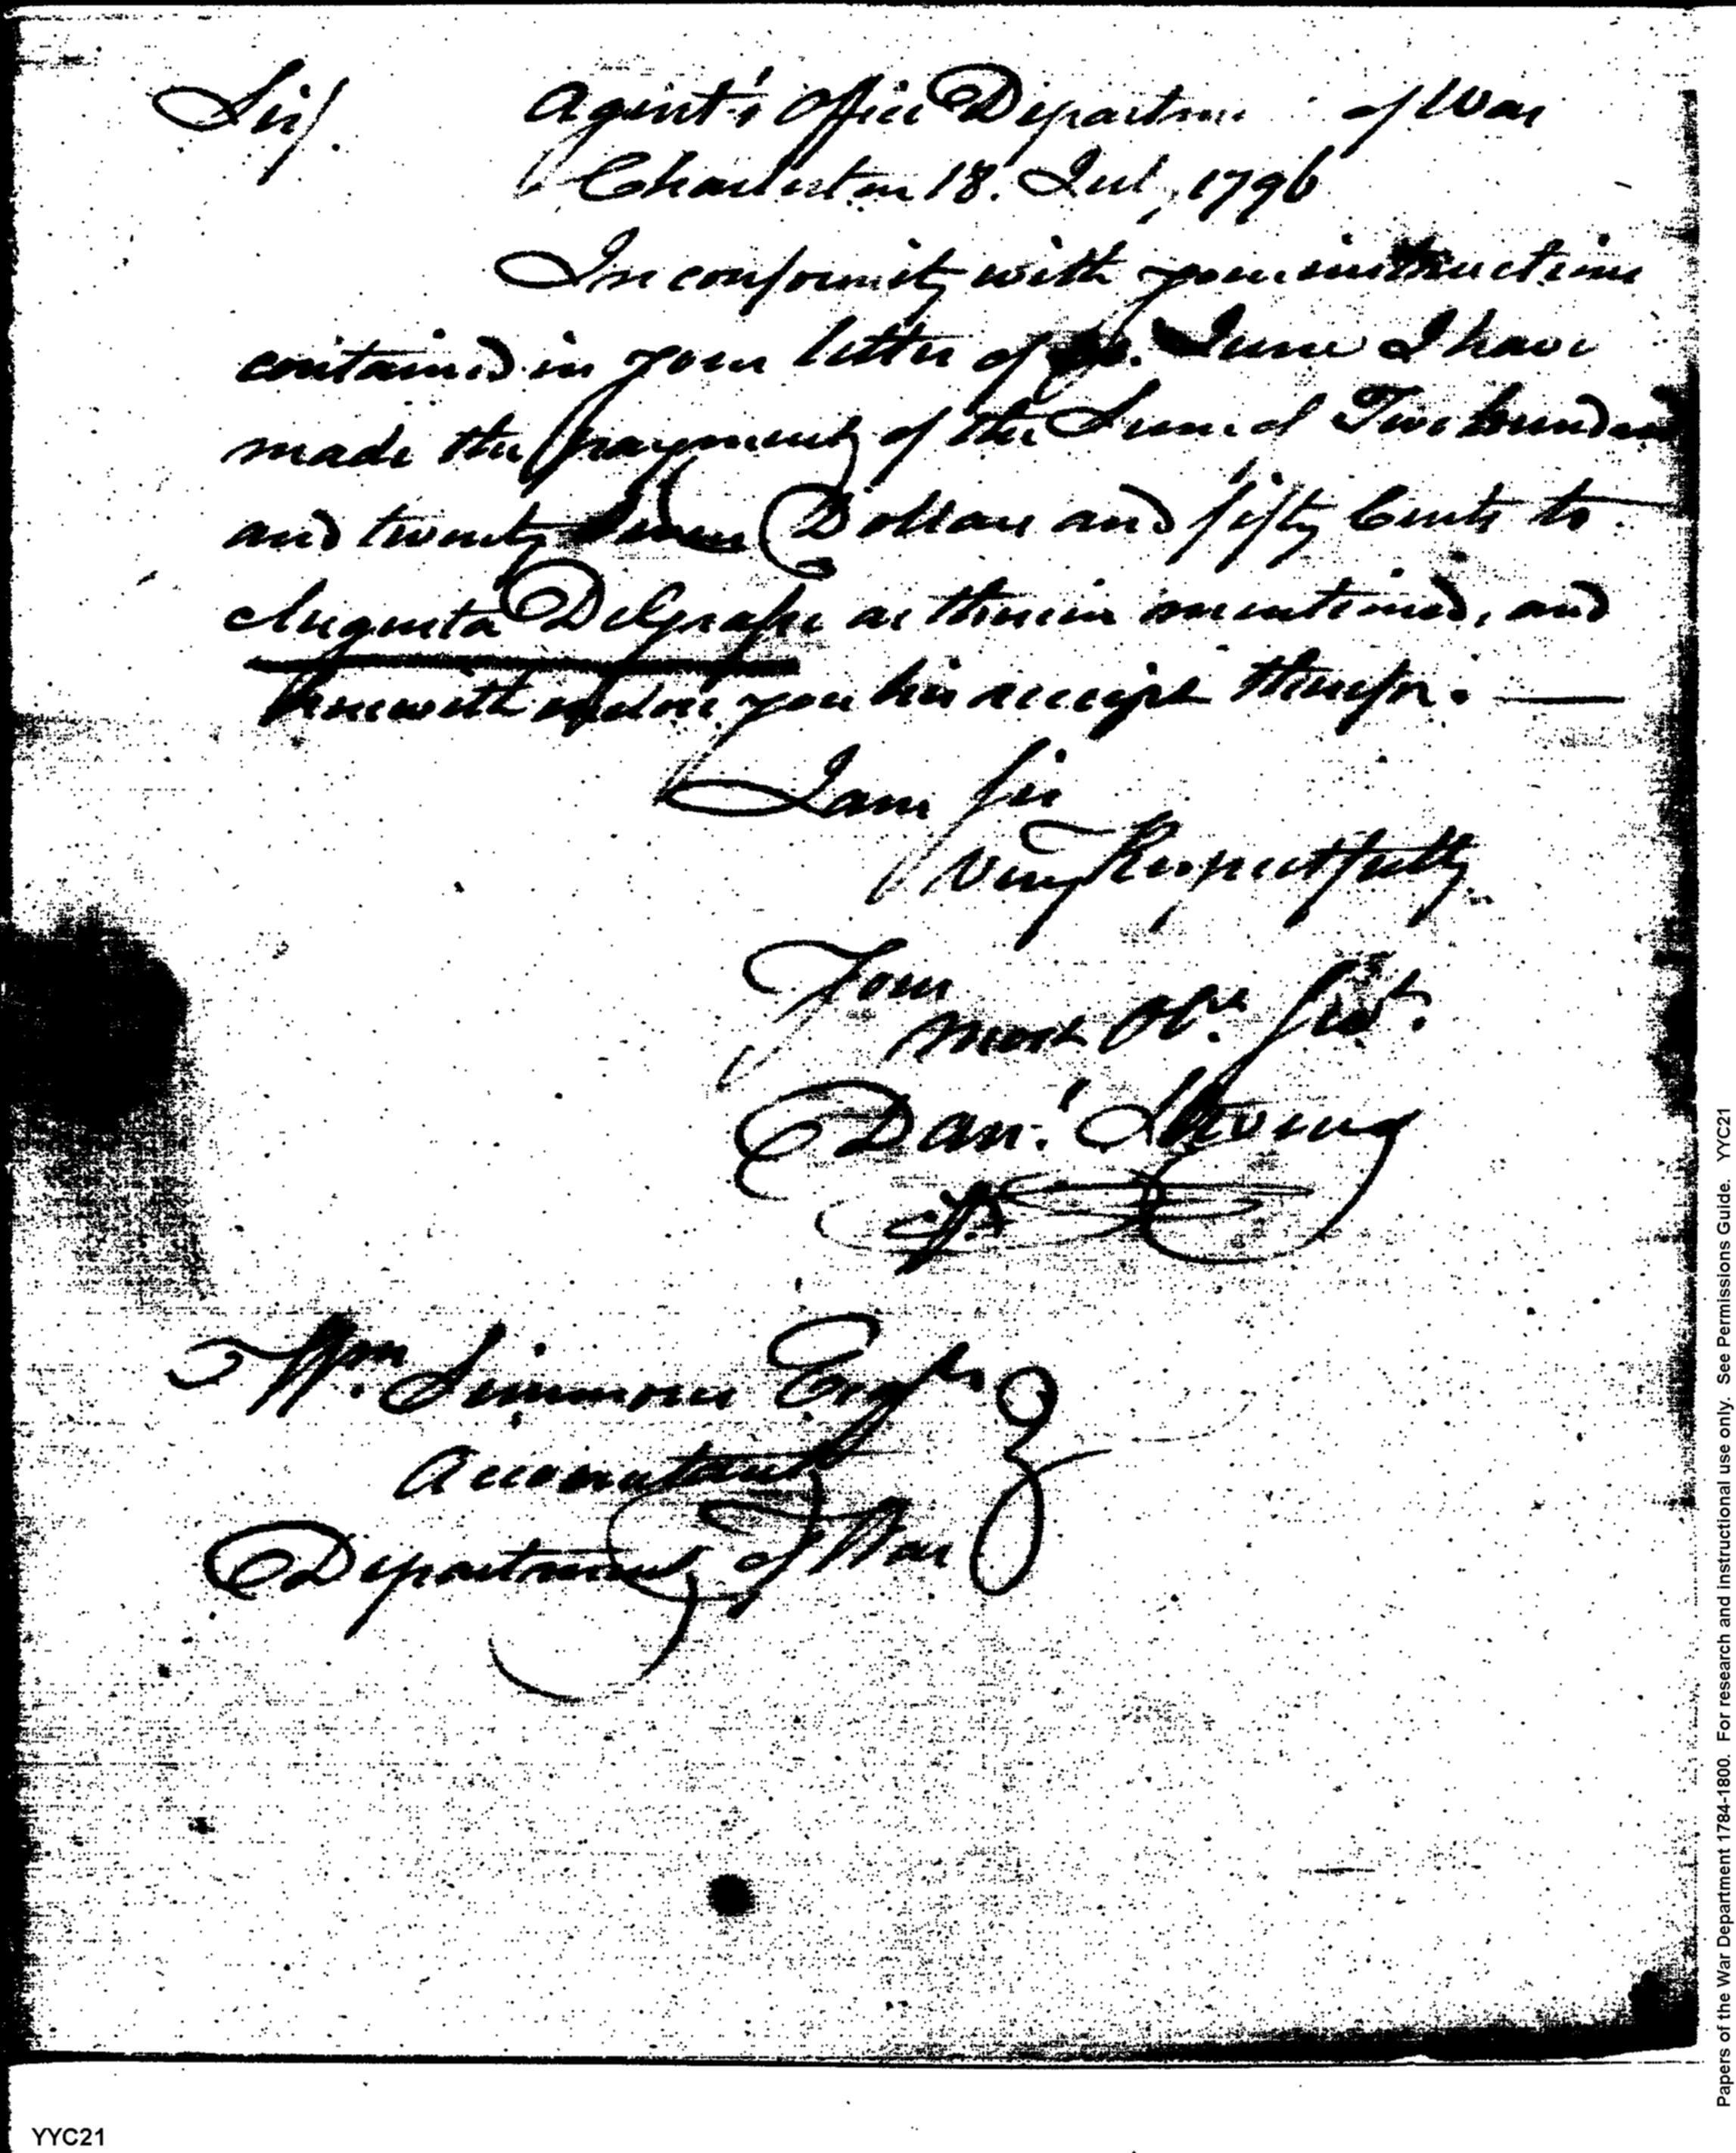 Sir/. Agent's Office Department of War
Charleston 18. July, 1796
In conformity with your instructions
contained in your letter of June I have
made the payment of the Sum of Two hundred
and twenty Seven Dollars and fifty Cents to
Augusta Delgrasse as therein mentioned, and
herewith enclose you his receipt therefor. —
I am Sir
Very Respectfully
Your
most Obt. Servt.
Danl. Stevens
Wm. Simmons Esqr.
Accountant
Department of War
YYC21
Papers of the War Department 1784-1800. For research and instructional use only. See Permissions Guide. YYC21